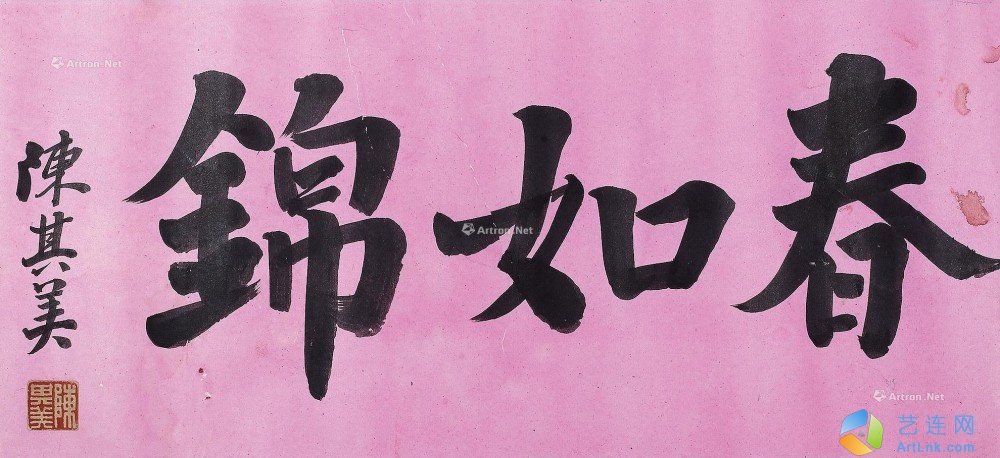 春如錦
陳其美
陳其美
Artron.Net
Artron.Net
Artron.Net
艺连网
ArtLnk.com